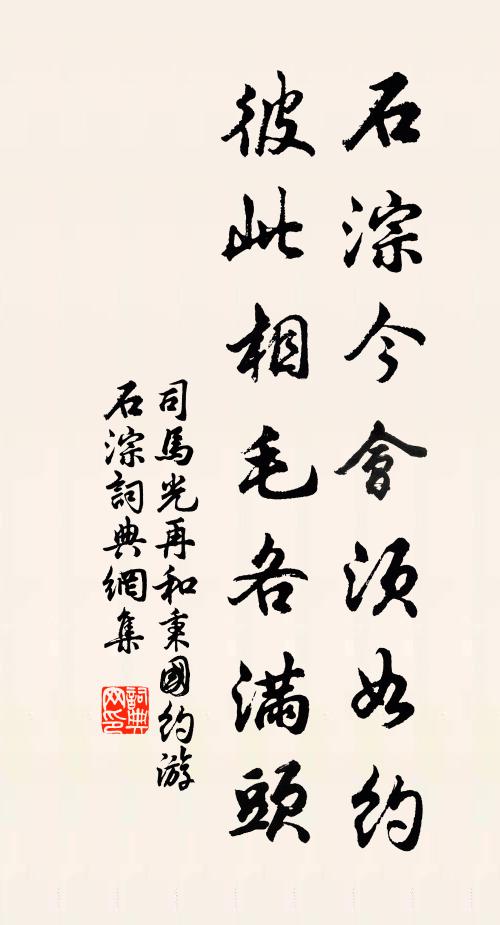 石淙今會須如約
彼此相毛各滿頭
司馬光再和秉國約游
石淙詞典網集
詞典网印